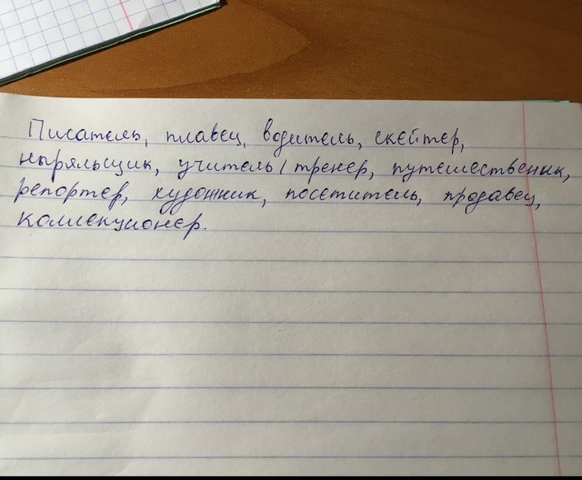 Писатель, плавец, водитель, скейтер,
ныряльщик, учитель/тренер, путешественик,
репортер, художник, посетитель, продавец,
коллекционер.